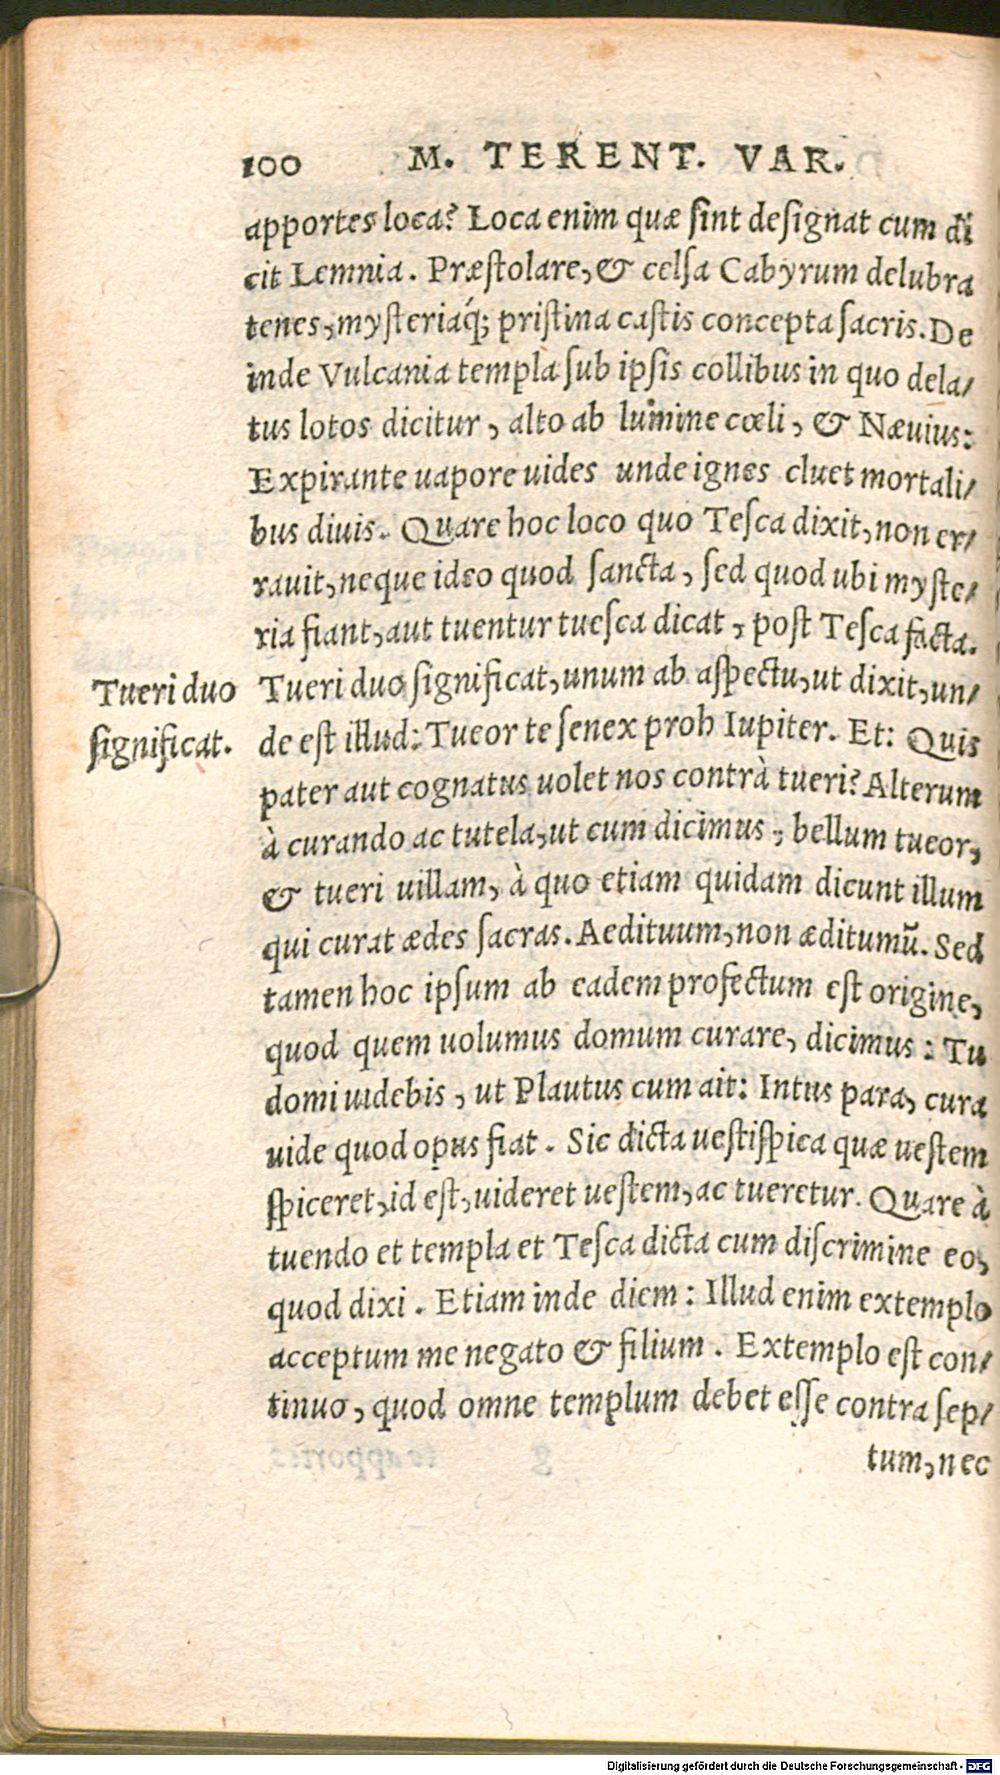 100 M. TERENT. VAR.
apportes loca? Loca enim quæ ſint deſignat cum di
cit Lemnia. Præſtolare, & celſa Cabyrum delubra
tenes, myſteriaq́; priſtina caſtis concepta ſacris. De
inde Vulcania templa ſub ipſis collibus in quo dela/
tus lotos dicitur, alto ab lumine cœli, & Næuius:
Expirante uapore uides unde ignes cluet mortali/
bus diuis. Quare hoc loco quo Teſca dixit, non er/
rauit, neque ideo quod ſancta, ſed quod ubi myſte/
ria fiant, aut tuentur tueſca dicat, poſt Teſca facta.
Tueri duo
ſignificat.
Tueri duo ſignificat, unum ab aſpectu, ut dixit, un/
de eſt illud: Tueor te ſenex proh Iupiter. Et: Quis
pater aut cognatus uolet nos contrà tueri? Alterum
à curando ac tutela, ut cum dicimus, bellum tueor,
& tueri uillam, à quo etiam quidam dicunt illum
qui curat ædes ſacras. Aedituum, non æditumũ. Sed
tamen hoc ipſum ab eadem profectum eſt origine,
quod quem uolumus domum curare, dicimus: Tu
domi uidebis, ut Plautus cum ait: Intus para, cura
uide quod opus fiat. Sic dicta ueſtiſpica quæ ueſtem
ſpiceret, id eſt, uideret ueſtem, ac tueretur. Quare à
tuendo et templa et Teſca dicta cum diſcrimine eo,
quod dixi. Etiam inde diem: Illud enim extemplo
acceptum me negato & filium. Extemplo eſt con/
tinuo, quod omne templum debet eſſe contra ſep/
tum, nec
Digitalisierung gefördert durch die Deutsche Forschungsgemeinschaft - DFG